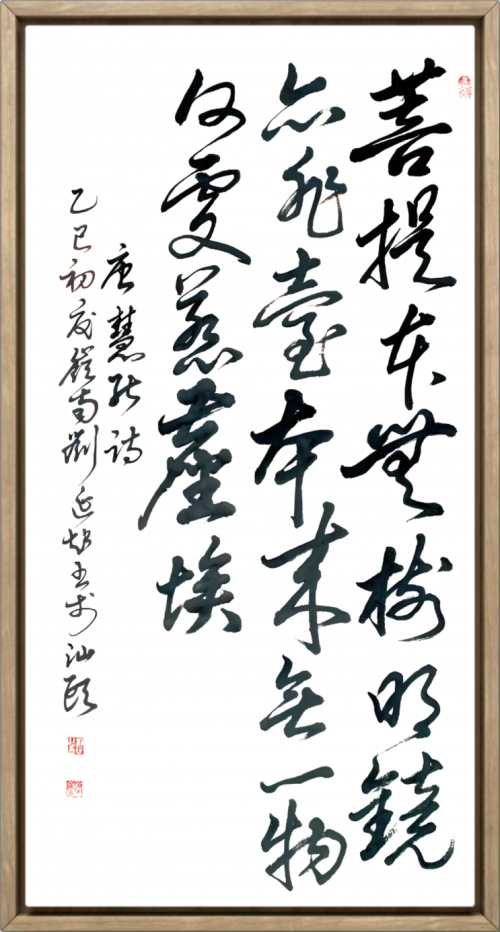 菩提本無樹明鏡
亦非臺本来無一物
何處惹塵埃
唐慧能詩
乙巳初夏嶺南劉延
書於汕頭